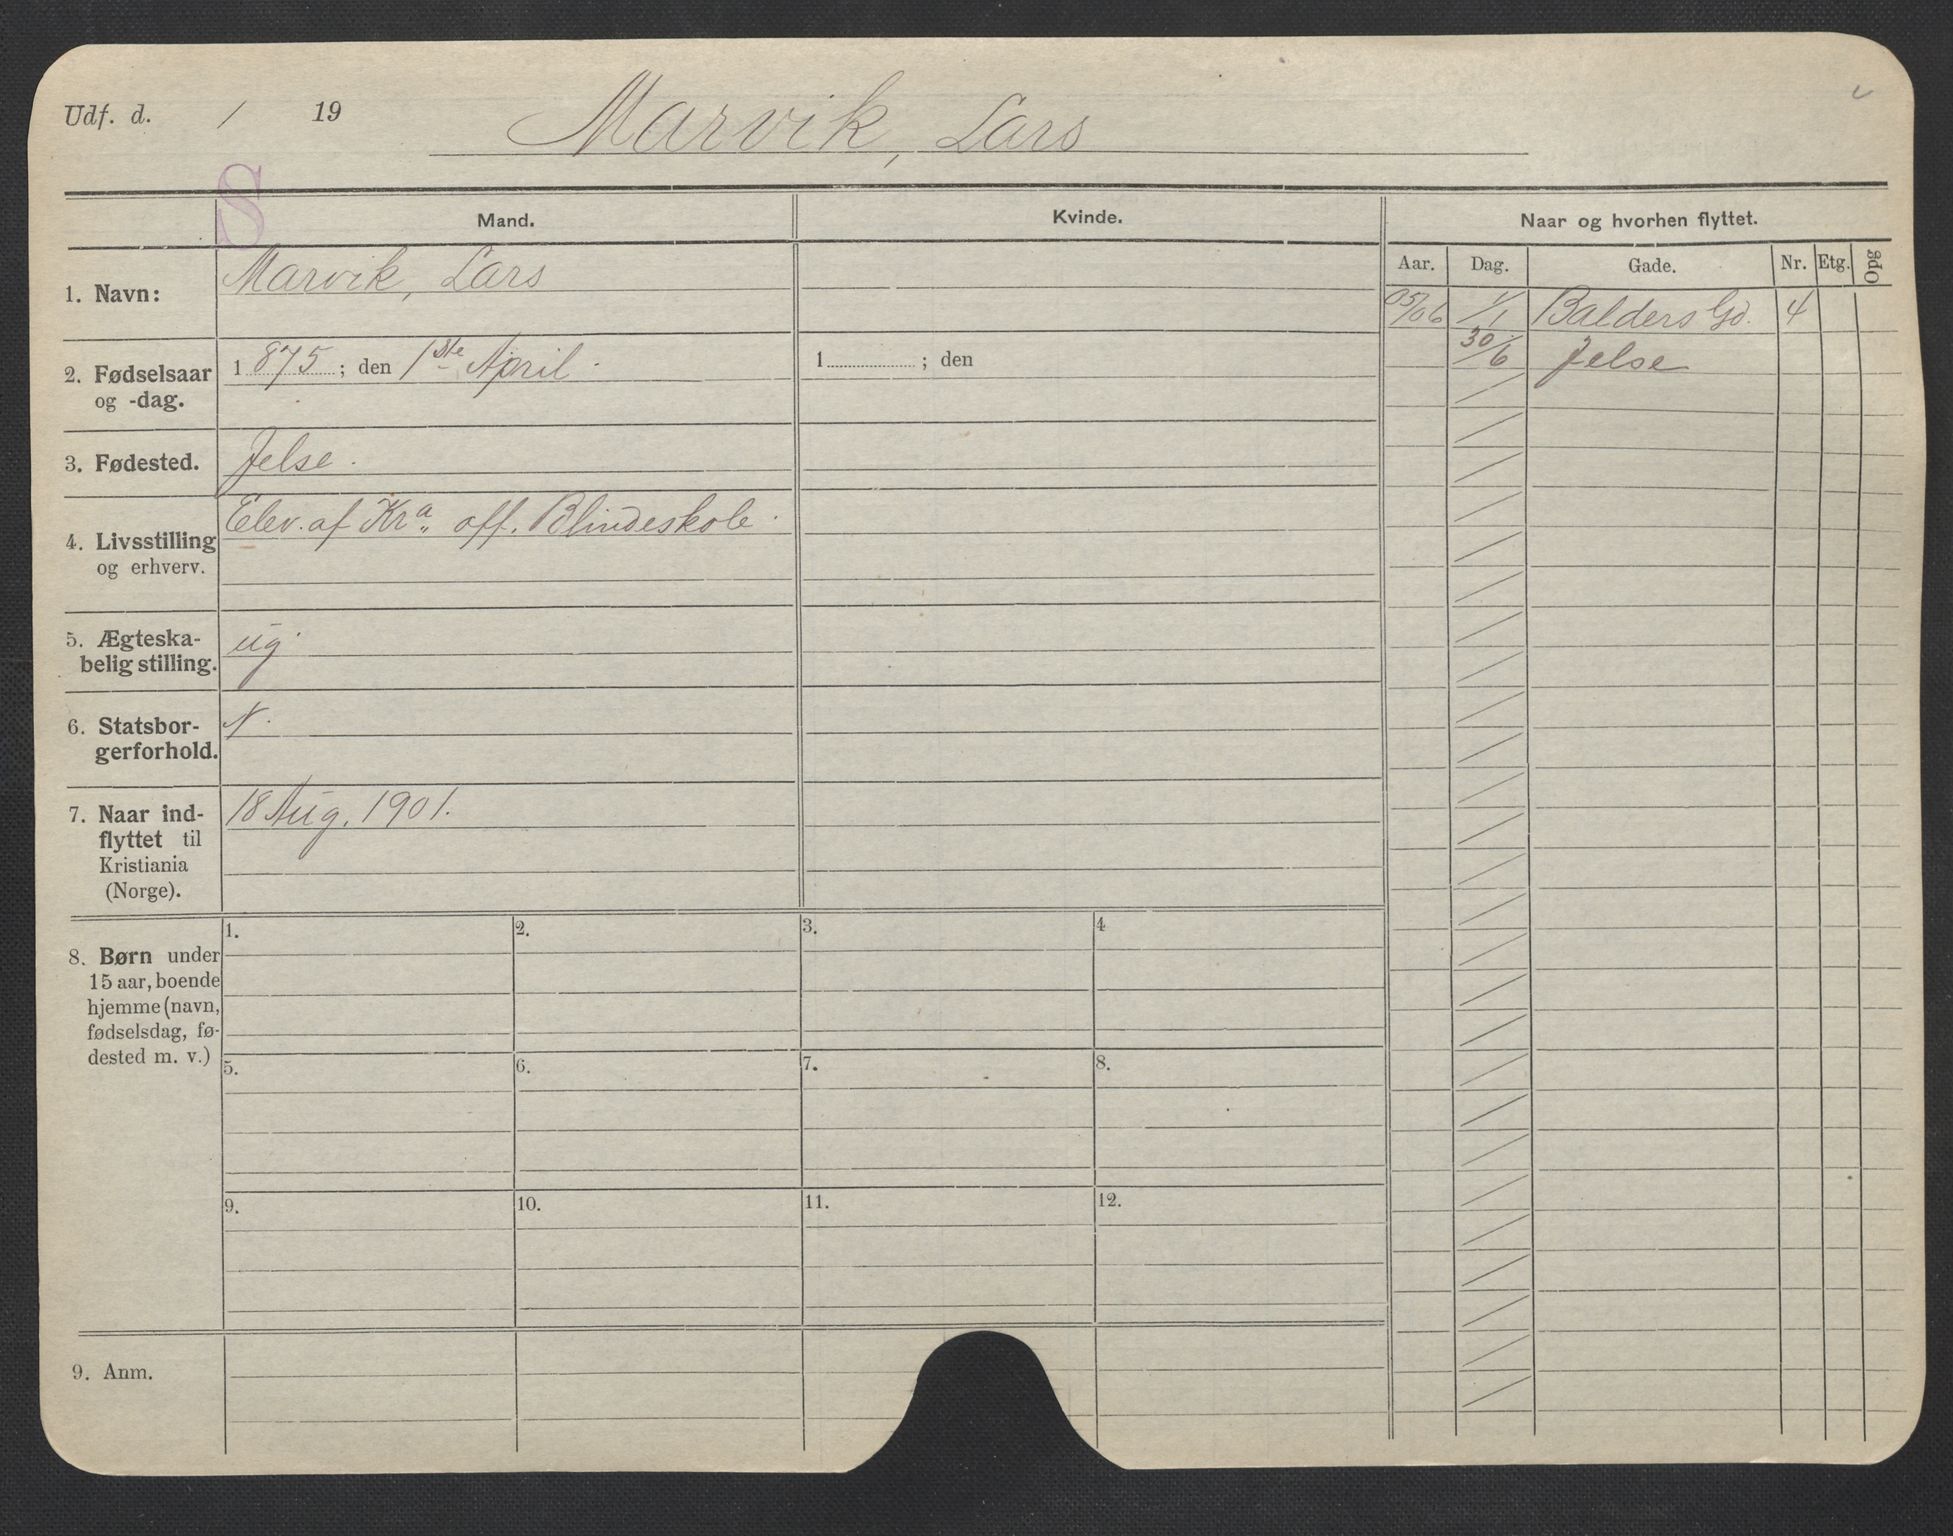 Udf. d. / 19
Marvik, Lars
S
Mand.
Kvinde.
Naar og hvorhen flyttet.
Aar. Dag. Gade. Nr. Etg. Opg
1. Navn:
Marvik, Lars
05/06 1/1 Balders Gd. 4
30/6 Jelse
2. Fødselsaar
og -dag.
1875; den 1ste April.
1 ; den
3. Fødested.
Jelse.
4. Livsstilling
og erhverv.
Elev. af Kra. off. Blindeskole.
5. Ægteska-
belig stilling.
ug.
6. Statsbor-
gerforhold.
N.
7. Naar ind-
flyttet til
Kristiania
(Norge).
18 Aug. 1901.
8. Børn under
15 aar, boende
hjemme (navn,
fødselsdag, fø-
dested m. v.)
1. 2. 3. 4
5. 6. 7. 8.
9. 10. 11. 12.
9. Anm.